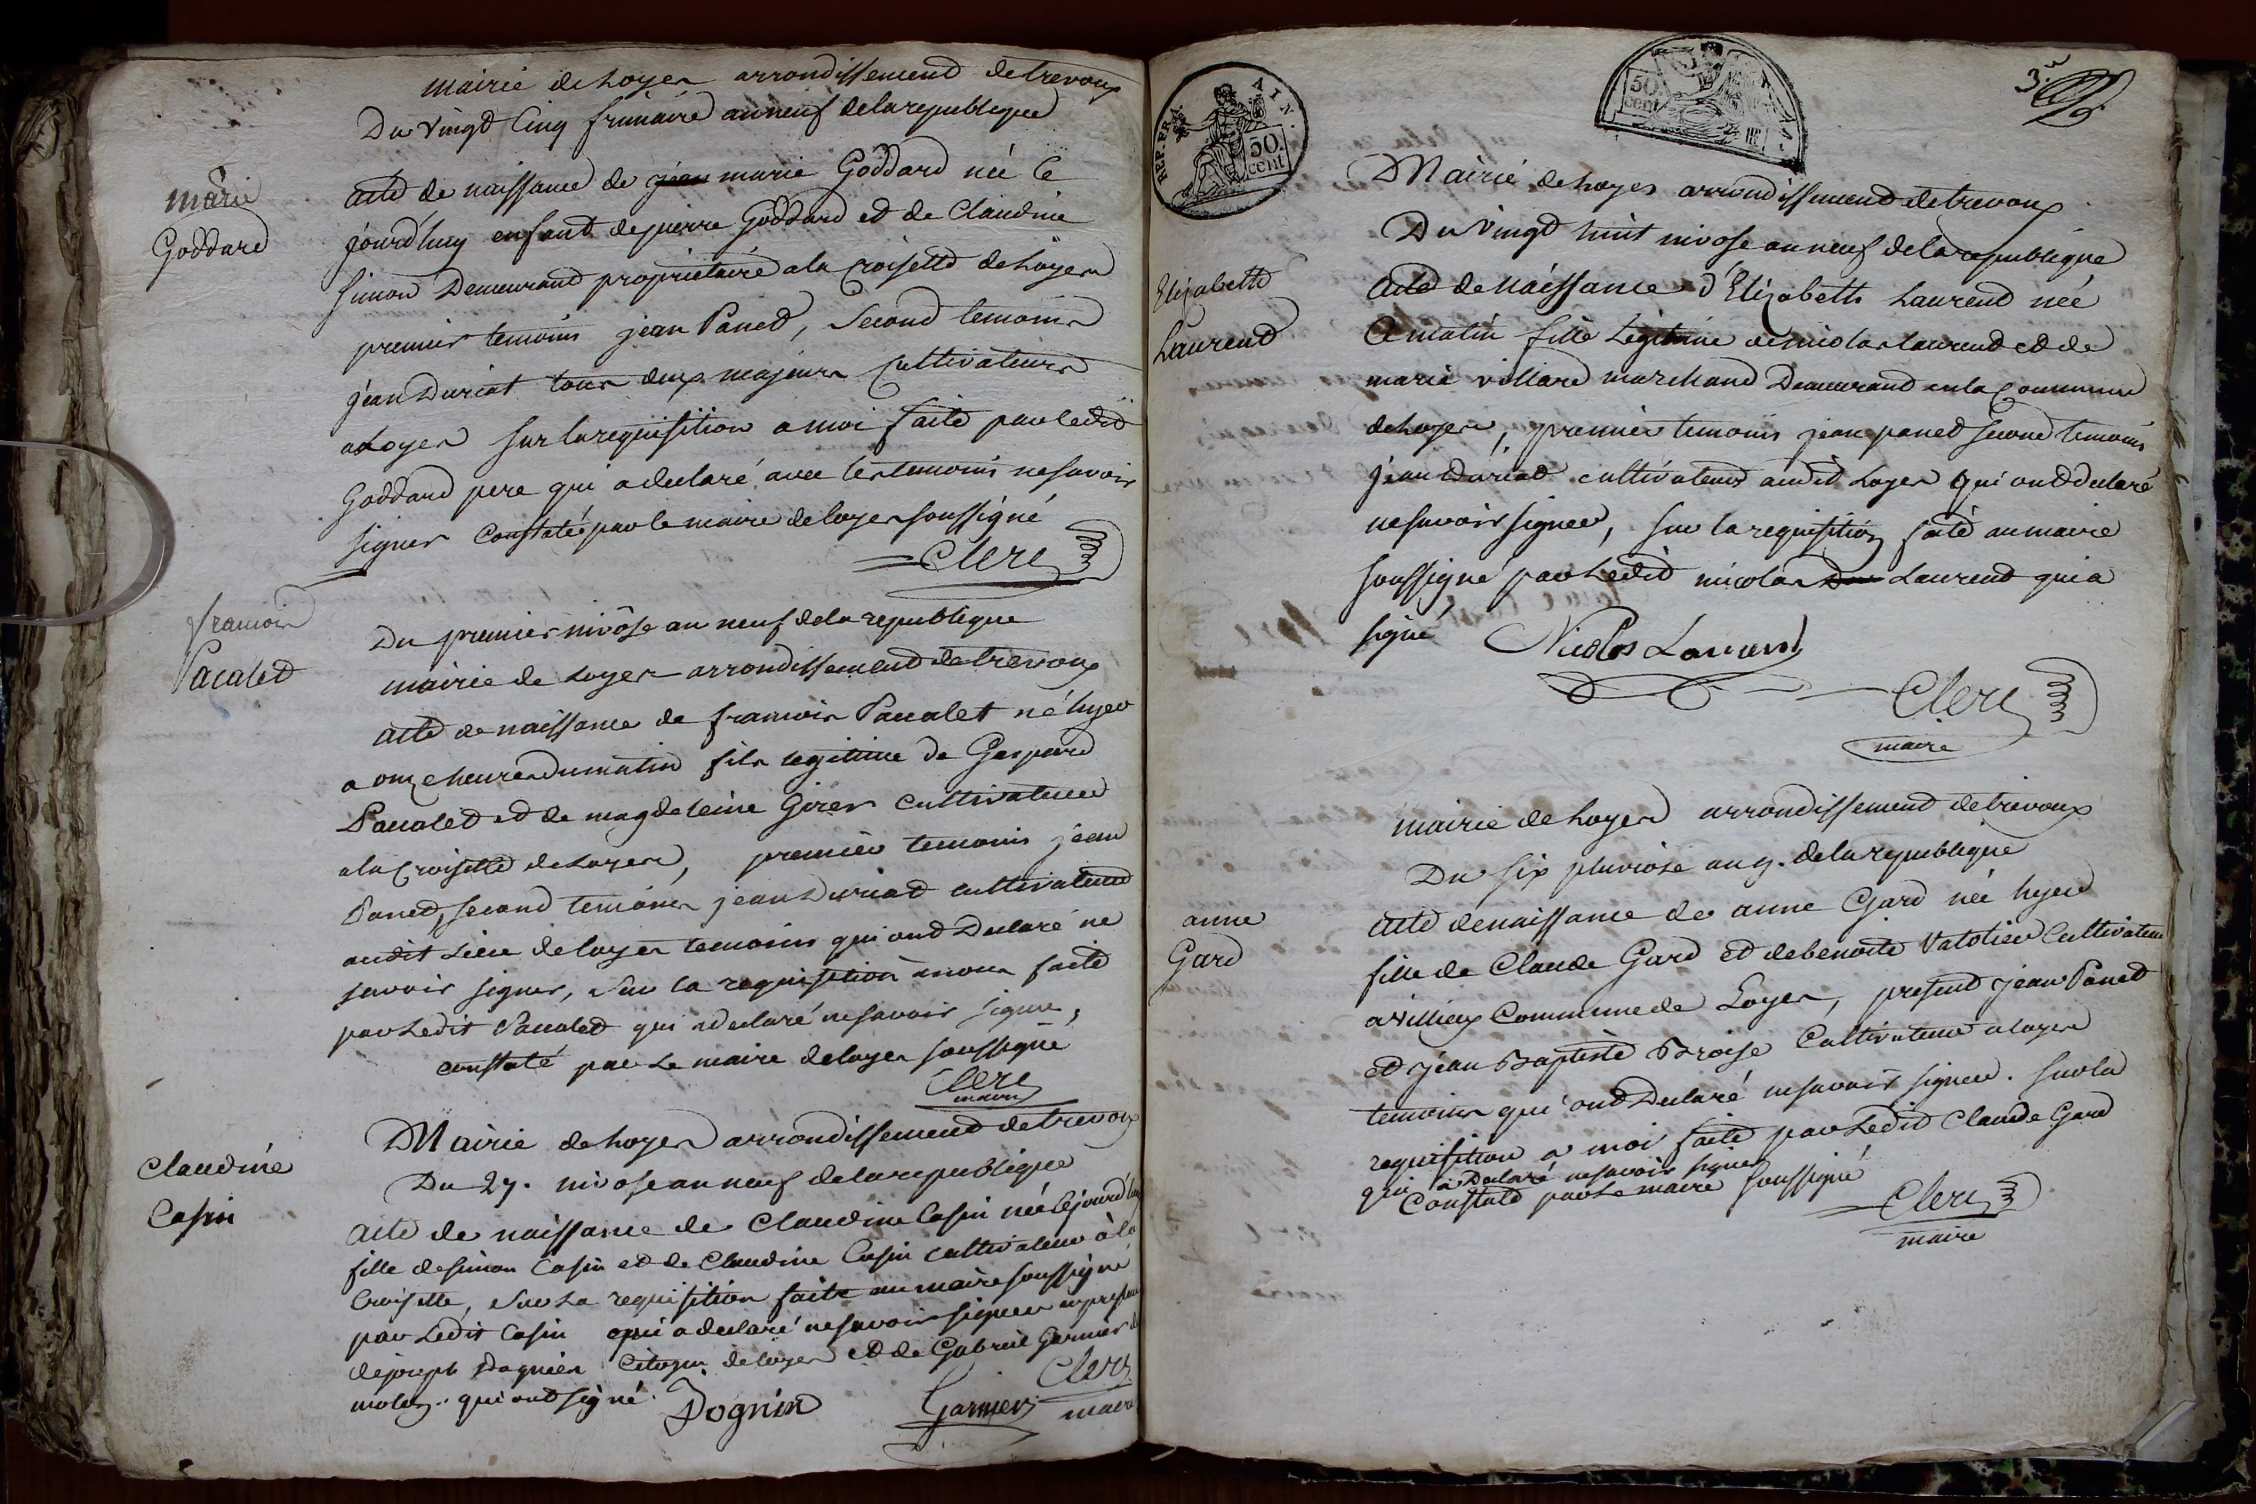 mairie de Loyes arrondissement de trevoux
Du vingt Cinq frimaire an neuf de la republique
marie
Goddard
acte de naissance de jean marie Goddard née ce
jourd'huy enfant de pierre Goddard et de Claudine
simon Demeurant propriétaire a la Croisette de Loyes
premier temoins jean Panet, Second temoins
jean Duriat tous deux majeurs Cultivateurs
a Loyes sur la requisition a moi faite par ledit
Goddard pere qui a declaré avec les temoins ne savoir
signer Constaté par le maire de loyes soussigné
Clerc
francois
Pacalet
Du premier nivôse an neuf de la republique
mairie de Loyes arrondissement de trevoux
acte de naissance de francois Pacalet né hyer
a onze heures du matin fils legitime de Gaspard
Pacalet et de magdeleine Girer cultivateur
a la Croisette de Loyes, premier temoins jean
Panet, second temoins jean Duriat cultivateurs
audit Lieu de loyes temoins qui ont Declaré ne
savoir signer, Sur la requisition a nous faite
par Ledit Pacalet qui a declaré ne savoir signer,
constaté par Le maire de loyes soussigné
Clerc
maire
Claudine
Casin
Mairie de Loyes arrondissement de trevoux
Du 27. nivose an neuf de la republique
acte de naissance de Claudine Casin née Cejourd'huy
fille de simon Casin et de Claudine Casin cultivateur à la
Croisette, Sur La requisition faite au maire soussigné
par Ledit Casin qui a declaré ne savoir signer en presence
de joseph Dognien Citoyen de loyes et de Gabriel Garnier de
qui ont signé.
Dognin Garnier Clerc
maire
REP. FRA. AIN.
50. cent
50. cent
3.
Mairie de Loyes arrondissement de trevoux
Du Vingt huit nivose an neuf de la republique
Elizabette
Laurent
acte de Naissance d'Elizabeth Laurent née
Ce matin fille Légitime de nicolas Laurent et de
marie villard marchand Demeurant en la Commune
de Loyes, premier temoins jean panet second temoins
jean Duriat cultivateurs audit Loyes qui ont declaré
ne savoir signer, sur la requisition faite au maire
soussigné par Ledit nicolas Laurent qui a
signé
Nicolas Laurent
Clerc
maire
mairie de Loyes arrondissement de trevoux
Du six pluviose an 9. de la republique
anne
Gard
acte de naissance de anne Gard née hyer
fille de Claude Gard et de benoite Vatolieu Cultivateur
a villieux Commune de Loyes, present jean Panet
et jean Baptiste Broise Cultivateurs a loyes
temoins qui ont Declaré ne savoir signer. Sur la
requisition a moi faite par Ledit Claude Gard
qui a Declaré ne savoir signer
Constaté par Le maire soussigné
Clerc
maire